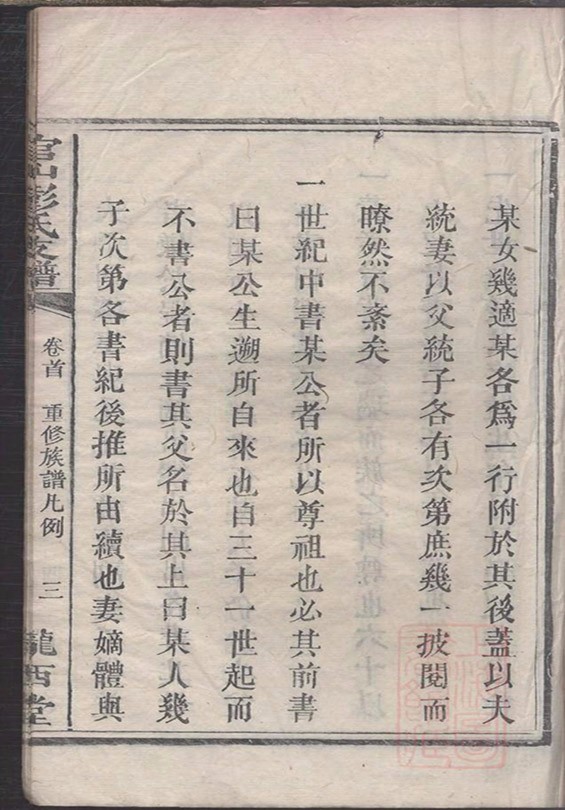 某女幾適某各爲一行附於其後蓋以夫
統妻以父統子各有次第庶幾一披閱而
瞭然不紊矣
一世紀中書某公者所以尊祖也必其前書
曰某公生遡所自來也自三十一世起而
不書公者則書其父名於其上曰某人幾
子次第各書紀後推所由續也妻嫡體與
官山彭氏支譜
卷首 重修族譜凡例 三
隴西堂